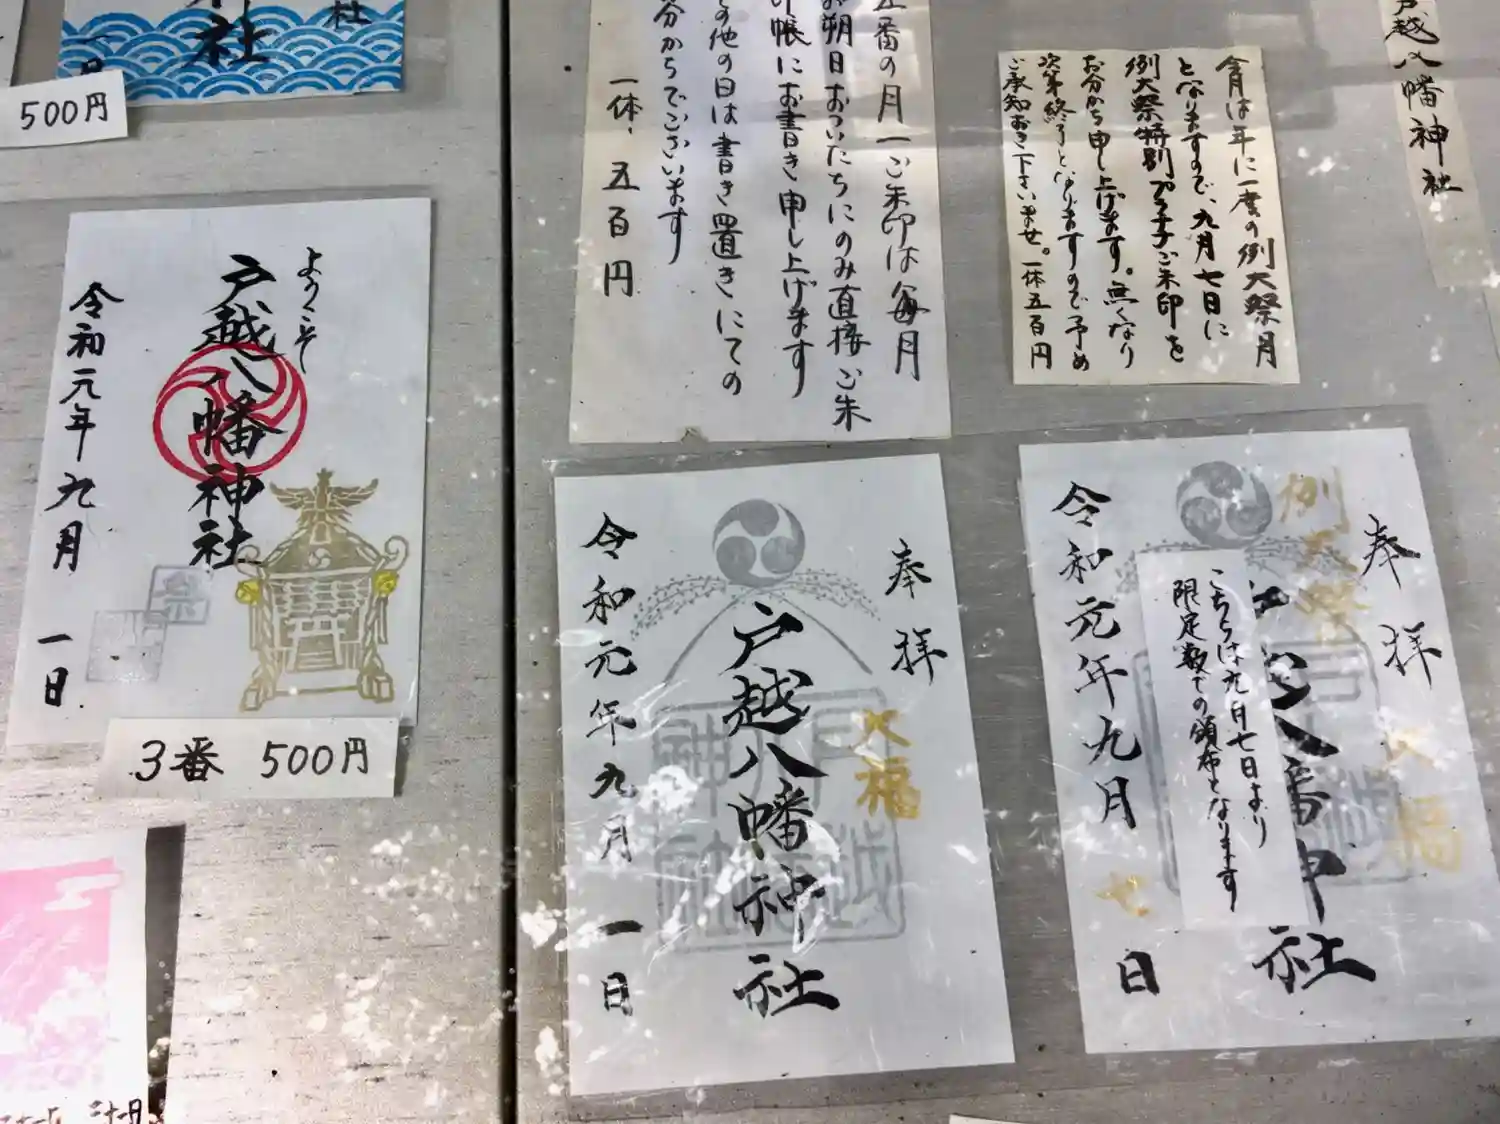 社
神社
一日
500円
ようこそ
戸越八幡神社
令和元年九月 一日
祭
3番 500円
五番の月一ご朱印は毎月
お朔日おついたちにのみ直接ご朱
印帳にお書き申し上げます
その他の日は書き置きにての
お分かちでございます
一体、五百円
今月は年に一度の例大祭月
となりますので、九月七日に
例大祭特別プラチナご朱印を
お分かち申し上げます。無くなり
次第終了となりますので予め
ご承知おき下さいませ。一体五百円
戸越八幡神社
奉拝
大福
戸越八幡神社
戸越八幡神社
令和元年九月一日
奉拝
例大祭
大福
社
こちらは九月七日より
限定数での頒布となります
令和元年九月七日